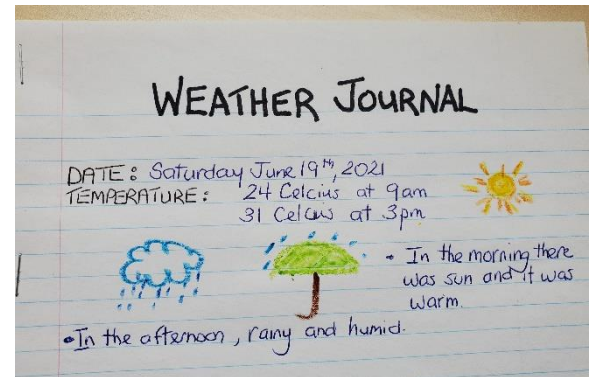 WEATHER JOURNAL
DATE: Saturday June 19th, 2021
TEMPERATURE: 24 Celcius at 9am
31 Celcius at 3pm
• In the morning there
was sun and it was
warm.
• In the afternoon, rainy and humid.